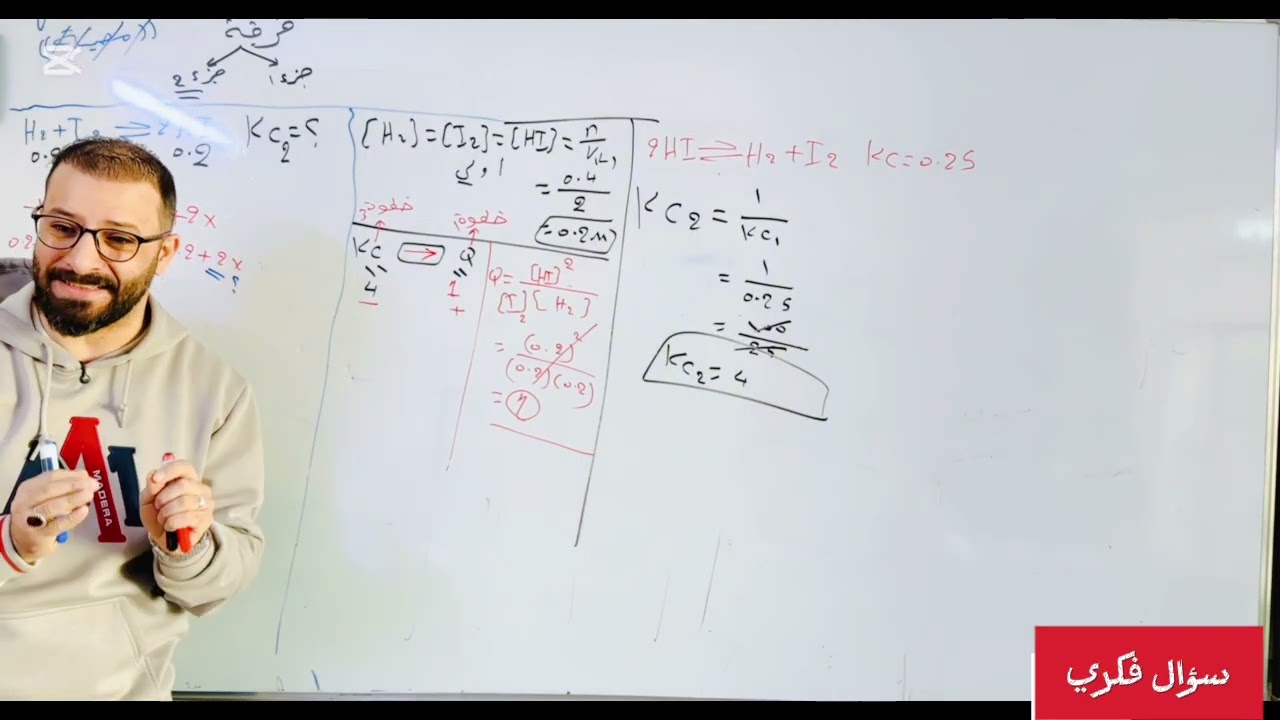 غرفة
جزء ١
جزء 2
H₂ + I₂ ⇌ 2HI
0.2
Kc₂ = ؟
-2x
0.2 + 2x
؟
[H₂] = [I₂] = [HI] = n/V(L)
= 0.4/2
= 0.2M
خطوة
خطوة
Kc → Q
4
1
+
Q = [HI]²/[I₂][H₂]
= (0.2)²/(0.2)(0.2)
= 1
2HI ⇌ H₂ + I₂ Kc = 0.25
Kc₂ = 1/Kc₁
= 1/0.25
= 100/25
Kc₂ = 4
MADERA
سؤال فكري